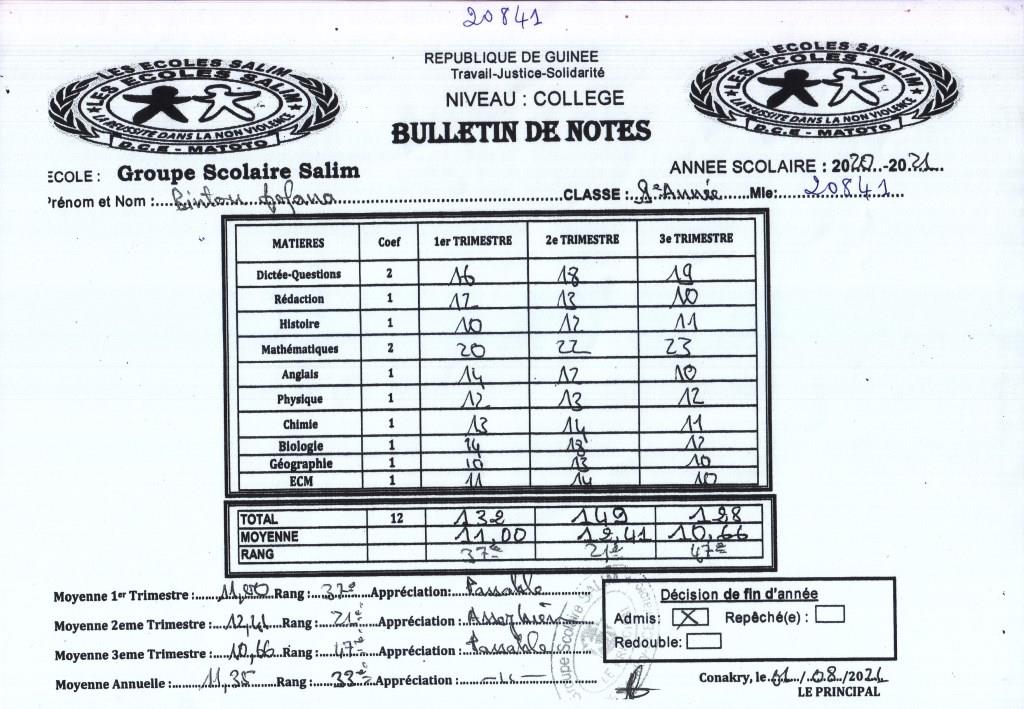 20841
LES ECOLES SALIM
LES ECOLES SALIM
LA REUSSITE DANS LA NON VIOLENCE
D.C.E - MATOTO
REPUBLIQUE DE GUINEE
Travail-Justice-Solidarité
NIVEAU : COLLEGE
BULLETIN DE NOTES
LES ECOLES SALIM
LES ECOLES SALIM
LA REUSSITE DANS LA NON VIOLENCE
D.C.E - MATOTO
ECOLE : Groupe Scolaire Salim ANNEE SCOLAIRE : 2020..-2021...
Prénom et Nom :.... CLASSE : 8e Année......Mle:...20841...
MATIERES Coef 1er TRIMESTRE 2e TRIMESTRE 3e TRIMESTRE
Dictée-Questions 2 16 18 19
Rédaction 1 12 13 10
Histoire 1 10 12 11
Mathématiques 2 20 22 23
Anglais 1 14 17 10
Physique 1 12 13 12
Chimie 1 13 14 11
Biologie 1 14 13 12
Géographie 1 10 13 10
ECM 1 11 14 10
TOTAL 12 132 149 128
MOYENNE 11,00 12,41 10,66
RANG 37e 21e 47e
Moyenne 1er Trimestre :.....11,00 Rang :...37e...Appréciation:..Passable
Moyenne 2eme Trimestre :....12,41...Rang :...21e...Appréciation :..Assez bien
Moyenne 3eme Trimestre :..10,66...Rang :...47e...Appréciation :..Passable
Moyenne Annuelle :......11,35......Rang :....33e..Appréciation :....-"-....
Décision de fin d'année
Admis: X Repêché(e) :
Redouble:
Conakry, le 01../..08../2021
LE PRINCIPAL